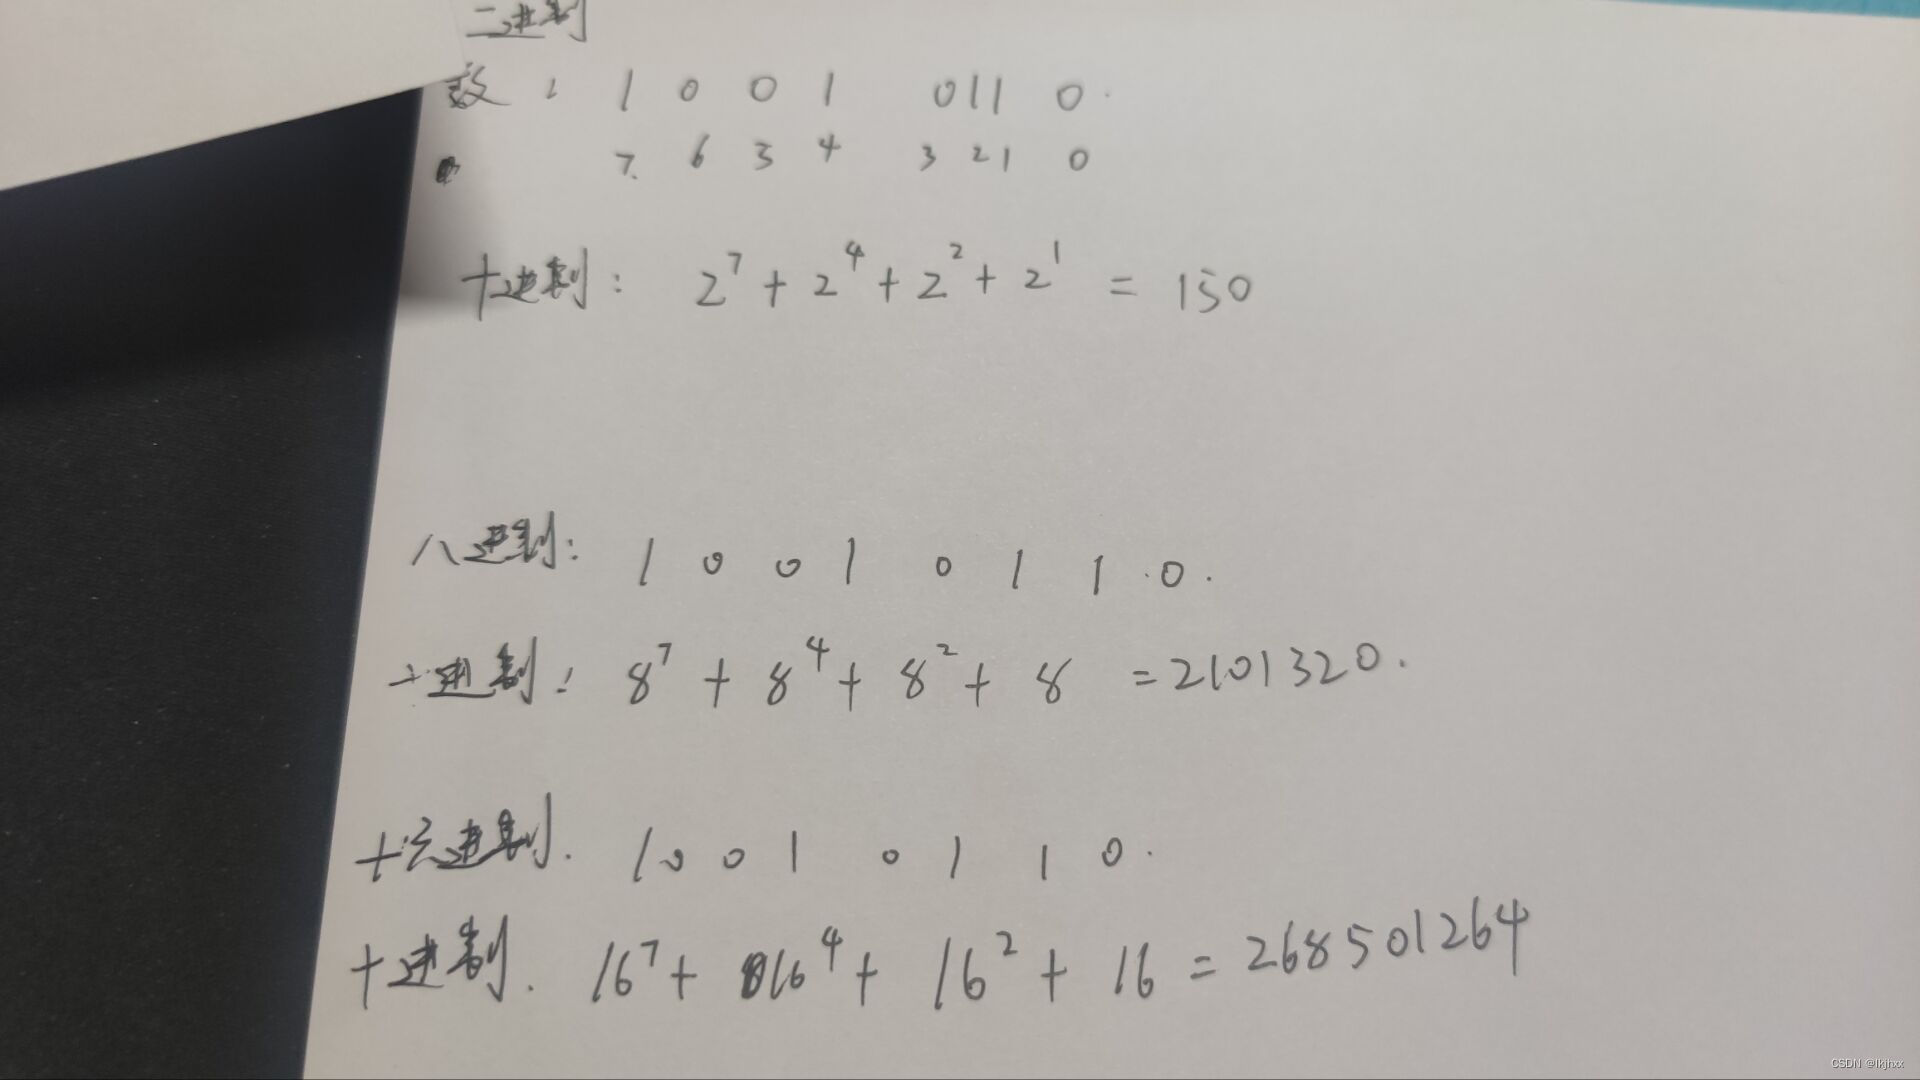 二进制
数: 1 0 0 1 0 1 1 0.
7 6 5 4 3 2 1 0
十进制: 2⁷ + 2⁴ + 2² + 2¹ = 150
八进制: 1 0 0 1 0 1 1 0.
十进制: 8⁷ + 8⁴ + 8² + 8 = 2101320.
十六进制. 1 0 0 1 0 1 1 0.
十进制. 16⁷ + 16⁴ + 16² + 16 = 268501264
CSDN @lkjhxx